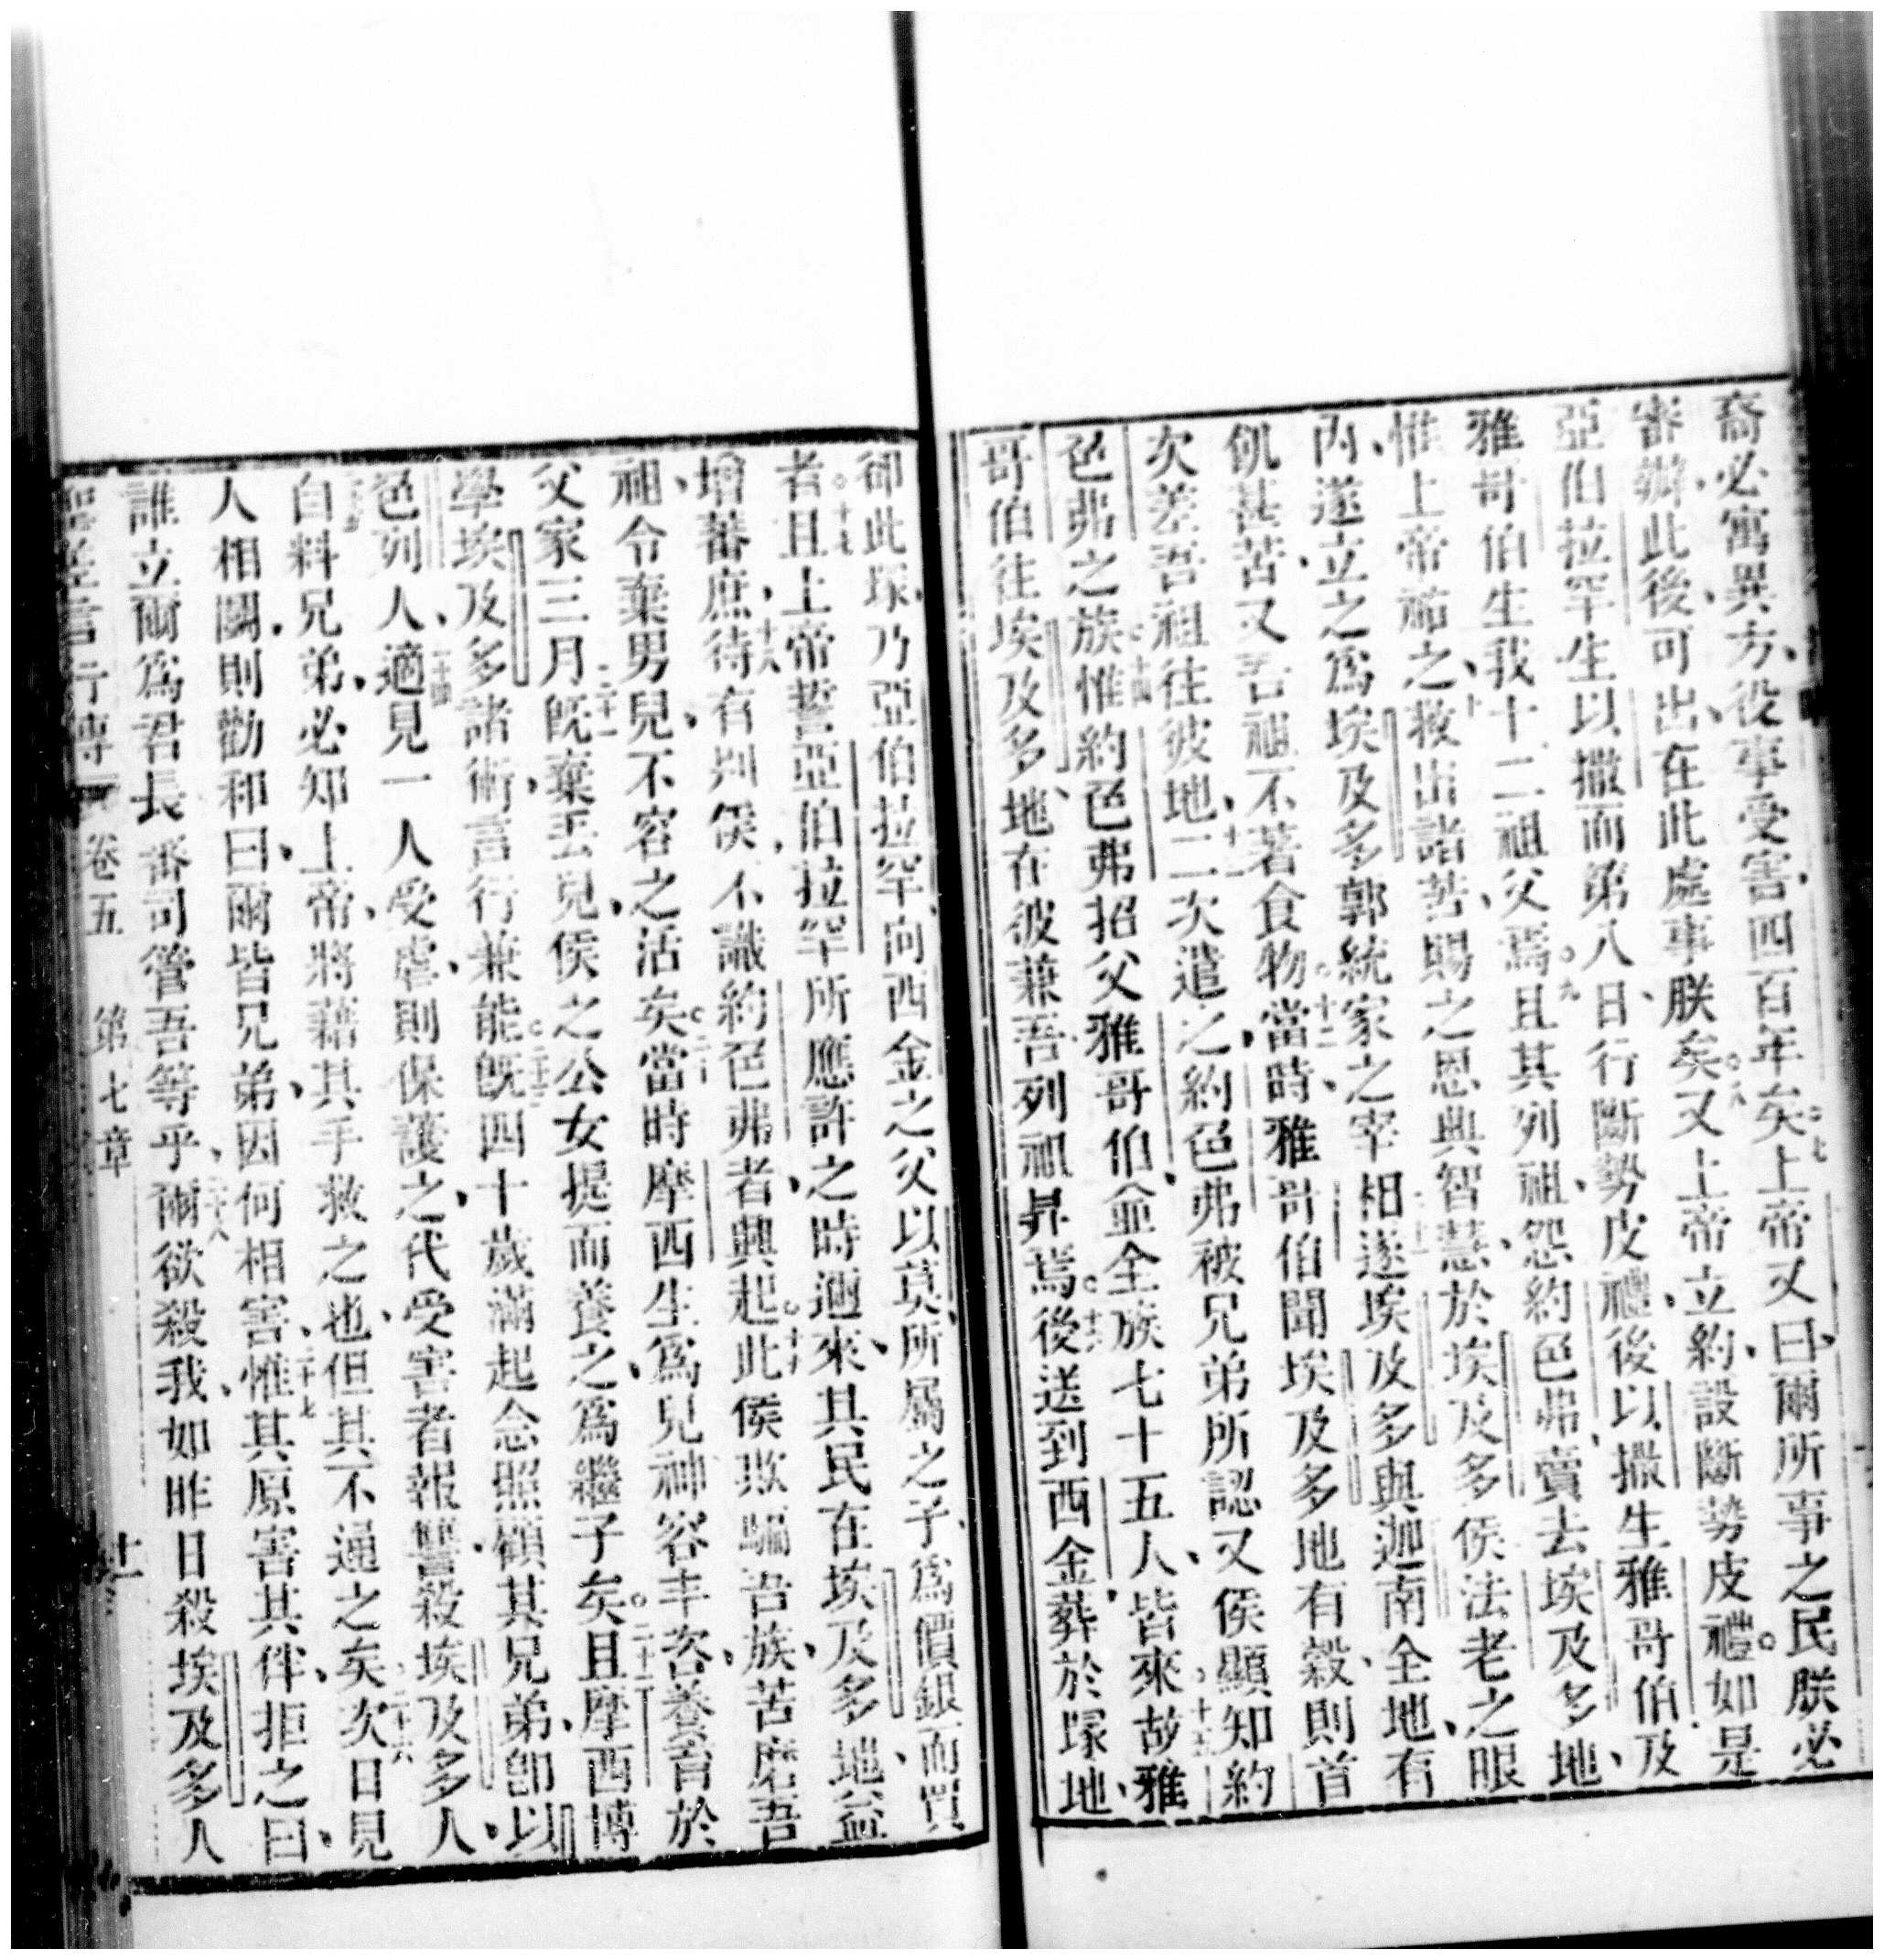 裔必寓異方、役事受害、四百年矣。七上帝又曰、爾所事之民朕必
審辦、此後、可出、在此處事朕矣。八又上帝立約、設斷勢皮禮。如是
亞伯拉罕生以撒而第八日、行斷勢皮禮、後以撒生雅哥伯及
雅哥伯生我十二祖父焉。九且其列祖、怨約色弗、賣去埃及多地、
惟上帝祐之、十救出諸苦、賜之恩典智慧、於埃及多侯法老之眼
內、遂立之為埃及多郭統家之宰相。十一遂埃及多與迦南全地、有
飢甚苦、又吾祖不著食物。十二當時、雅哥伯聞埃及多地有穀、則首
次差吾祖往彼地、十三二次遣之、約色弗被兄弟所認又侯顯知約
色弗之族。十四惟約色弗招父雅哥伯、並全族七十五人、皆來。十五故雅
哥伯往埃及多、地在彼兼吾列祖昇焉。十六後送到西金、葬於塚地、
卻此塚、乃亞伯拉罕、向西金之父以莫、所屬之子、為價銀而買
者。十七且上帝誓亞伯拉罕所應許之時邇來、其民在埃及多地、益
增蕃庶、十八待有別侯、不識約色弗者、興起。十九此侯欺騙吾族、苦磨吾
祖、令棄男兒、不容之活矣。二十當時摩西生為兒神容丰客、養育於
父家三月。二十一旣棄丟兒、侯之公女提而養之、為繼子矣。二十二且摩西博
學埃及多諸術、言行兼能。二十三旣四十歲滿、起念照顧其兄弟、卽以
色列人、二十四適見一人受虐、則保護之、代受害者報讐、殺埃及多人、
二十五自料兄弟、必知上帝、將藉其手救之也、但其不通之矣。二十六次日見
人相鬭、則勸和曰、爾皆兄弟、因何相害、二十七惟其原害其伴、拒之曰、
誰立爾為君長審司管吾等乎、二十八爾欲殺我、如昨日殺埃及多人
聖差言行傳 卷五 第七章